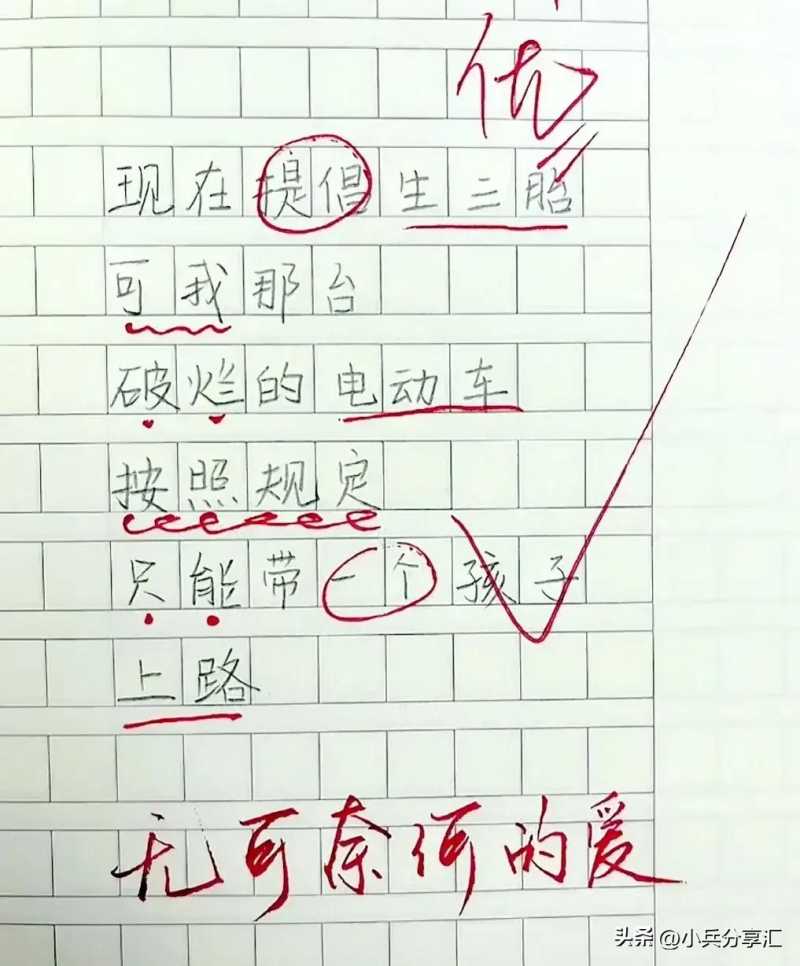 优
现在提倡生三胎
可我那台
破烂的电动车
按照规定
只能带一个孩子
上路
无可奈何的爱
头条 @小兵分享汇